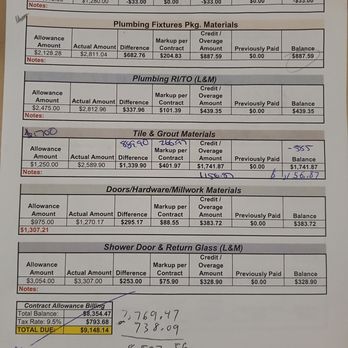 $1,280.00 -$33.00 $0.00 -$33.00
Notes:
Plumbing Fixtures Pkg. Materials
Allowance Amount Actual Amount Difference Markup per Contract Credit / Overage Amount Previously Paid Balance
$2,128.28 $2,811.04 $682.76 $204.83 $887.59 $0.00 $887.59
Notes:
Plumbing RI/TO (L&M)
Allowance Amount Actual Amount Difference Markup per Contract Credit / Overage Amount Previously Paid Balance
$2,475.00 $2,812.96 $337.96 $101.39 $439.35 $0.00 $439.35
Notes:
$1700
Tile & Grout Materials
889.90 266.97 -585
Allowance Amount Actual Amount Difference Markup per Contract Credit / Overage Amount Previously Paid Balance
$1,250.00 $2,589.90 $1,339.90 $401.97 $1,741.87 $0.00 $1,741.87
Notes:
1156.87 1,156.87
Doors/Hardware/Millwork Materials
Allowance Amount Actual Amount Difference Markup per Contract Credit / Overage Amount Previously Paid Balance
$975.00 $1,270.17 $295.17 $88.55 $383.72 $0.00 $383.72
$1,307.21
Shower Door & Return Glass (L&M)
Allowance Amount Actual Amount Difference Markup per Contract Credit / Overage Amount Previously Paid Balance
$3,054.00 $3,307.00 $253.00 $75.90 $328.90 $0.00 $328.90
Notes:
Contract Allowance Billing
Total Balance: $8,354.47
7,769.47
Tax Rate: 9.5% $793.68
738.09
TOTAL DUE: $9,148.14